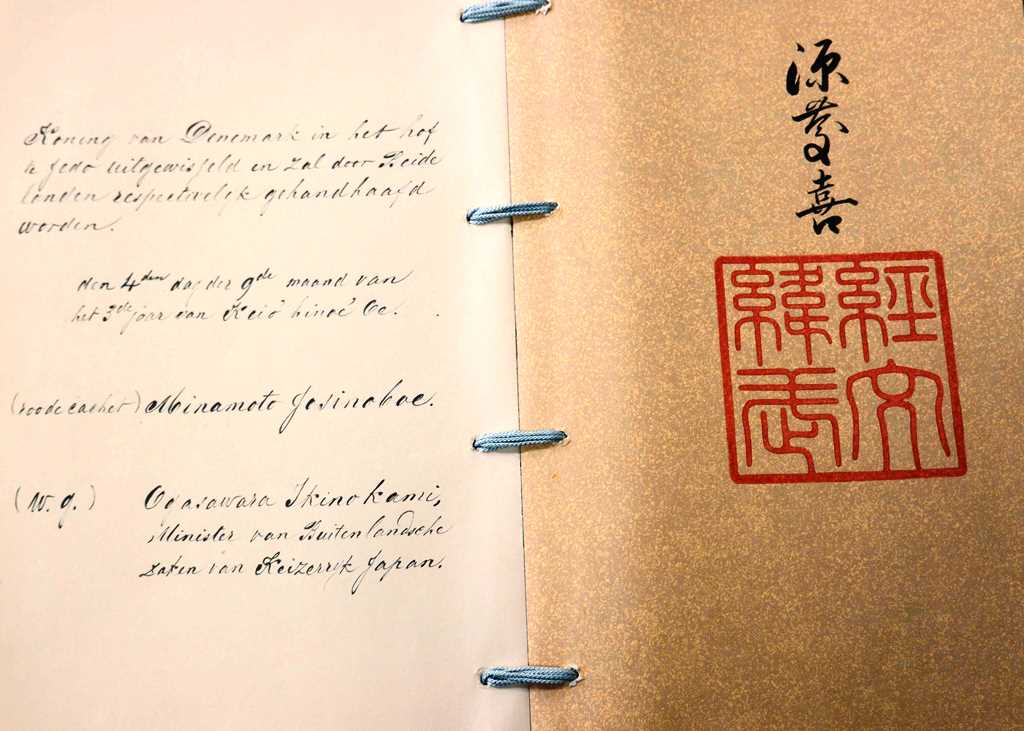 Koning van Denemark in het hof
te Jedo uitgewisfeld en zal door Beide
landen respectivelyk gehandhaafd
worden.
den 4den dag der 9de maand van
het 3de jaar van Keiô
(roode cachet) Minamoto Josinoboe.
(w. g.) Ogasawara Ikinokami,
Minister van Buitenlandsche
zaken van Keizerryk Japan.
源慶喜
經文
緯武